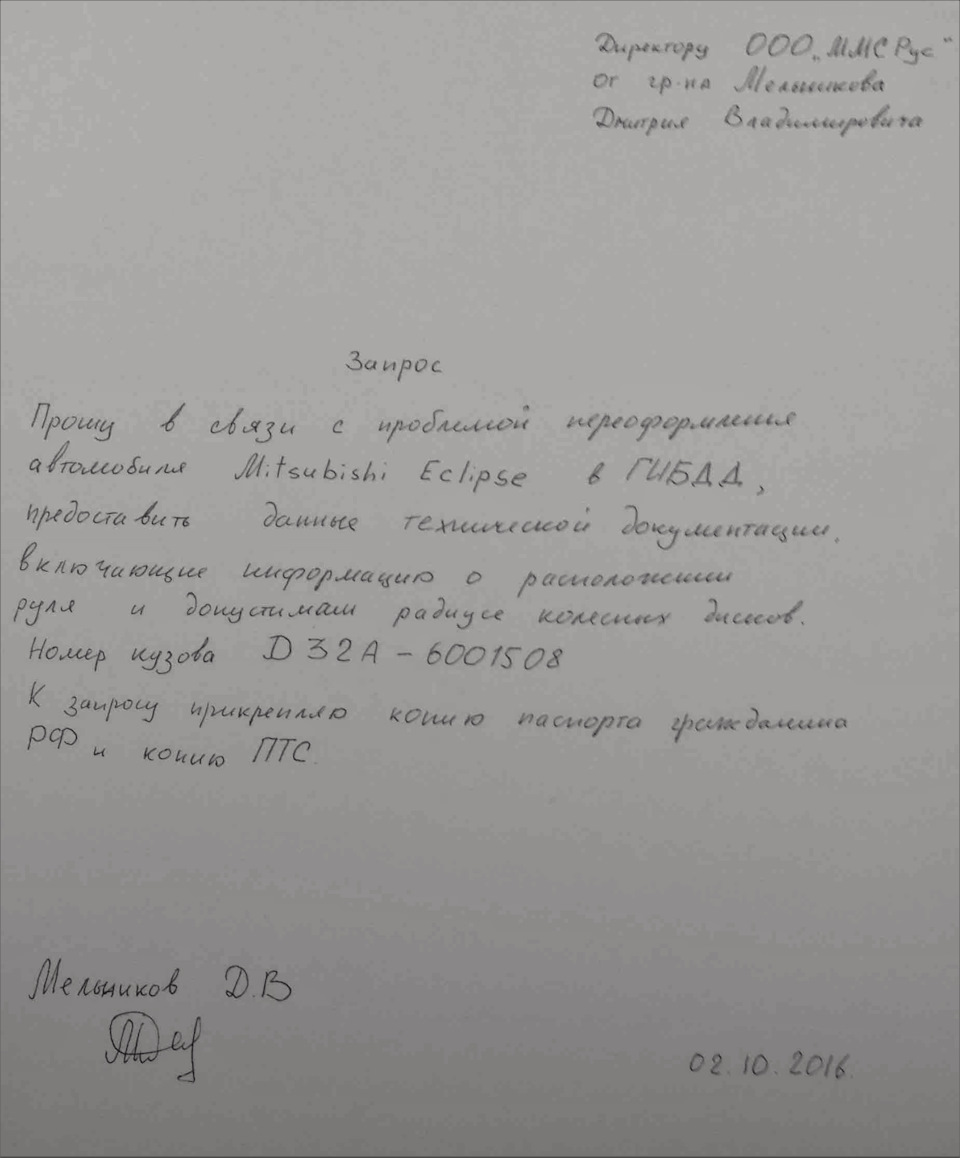 Директору ООО „ММС Рус"
От гр-на Мельникова
Дмитрия Владимировича
Запрос
Прошу в связи с проблемой переоформления
автомобиля Mitsubishi Eclipse в ГИБДД,
предоставить данные технической документации,
включающие информацию о расположении
руля и допустимам радиусе колесных дисков.
Номер кузова D32A-6001508
К запросу прикрепляю копию паспорта гражданина
РФ и копию ПТС.
Мельников Д.В
02.10.2016.